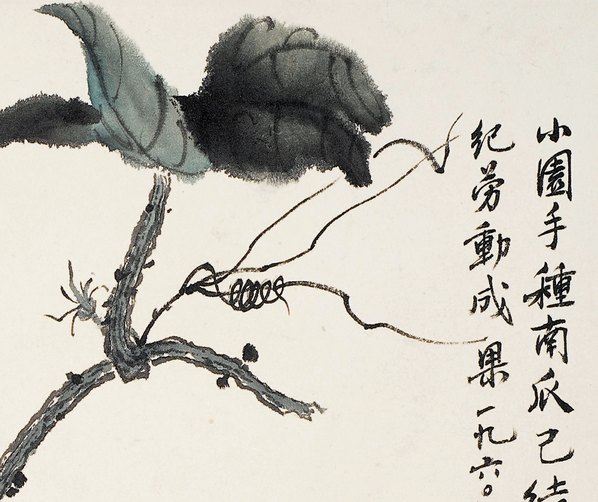 小園手種南瓜已結
紀勞動成果一九六〇